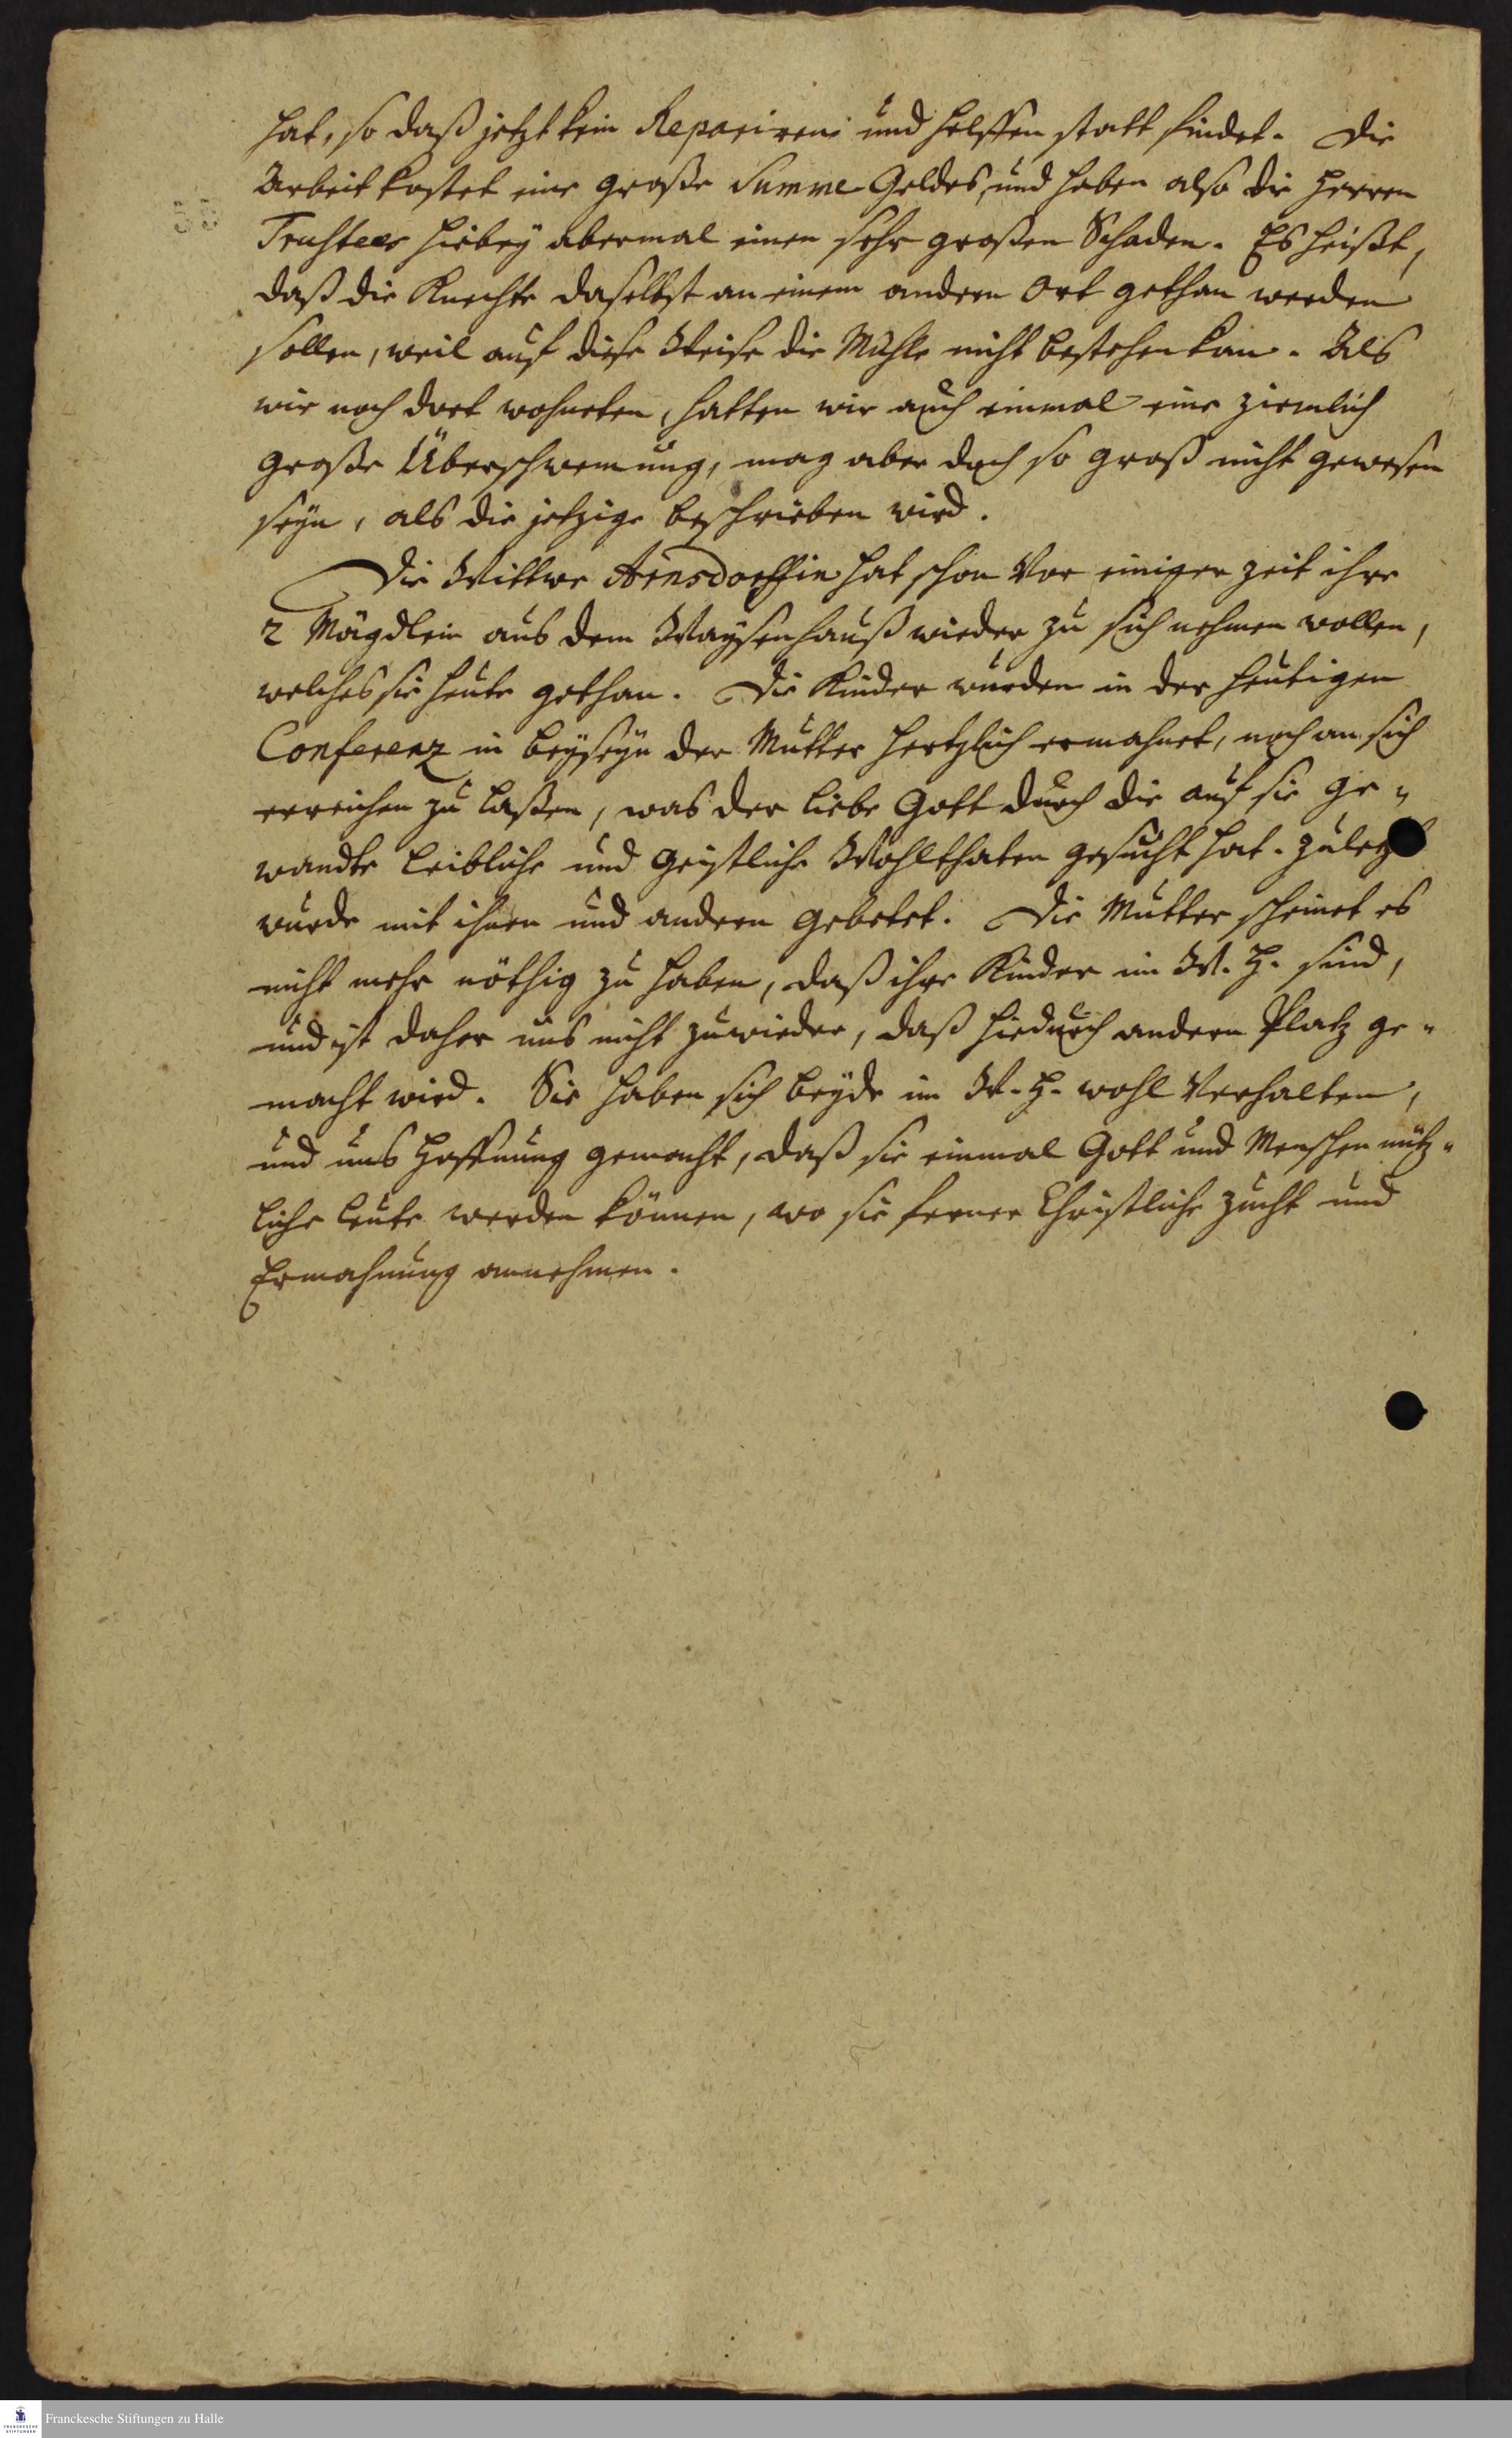 hat, so daß jetzt kein Repariren und helffen statt findet. Die
Arbeit kostet eine große Summe Geldes, und haben also die Herren
Trustees hiebey abermal einen sehr großen Schaden. Es heißt,
daß die Knechte daselbst an einem andern Ort gethan werden
sollen, weil auf diese Weise die Mühle nicht bestehen kan. Als
wir noch dort wohneten, hatten wir auch einmal eine ziemlich
große Überschwemung, mag aber doch so groß nicht gewesen
seyn, als die jetzige beschrieben wird.
Die Wittwe Arnsdorffin hat schon vor einiger Zeit ihre
2 Mägdlein aus dem Waysenhauß wieder zu sich nehmen wollen,
welches sie heute gethan. Die Kinder wurden in der heutigen
Conferenz in beyseyn der Mutter hertzlich ermahnet, noch an sich
erreichen zu laßen, was der liebe Gott durch die auf sie ge„
wandte leibliche und geistliche Wohlthaten gesucht hat. Zuletz
wurde mit ihnen und andern gebetet. Die Mutter scheinet es
nicht mehr nöthig zu haben, daß ihre Kinder im W. H. sind,
und ist daher uns nicht zuwieder, daß hiedurch andern Platz ge„
macht wird. Sie haben sich beyde im W. H. wohl verhalten,
und uns Hoffnung gemacht, daß sie einmal Gott und Menschen nütz„
liche Leute werden können, wo sie ferner Christliche Zucht und
Ermahnung annehmen.
Franckesche Stiftungen zu Halle